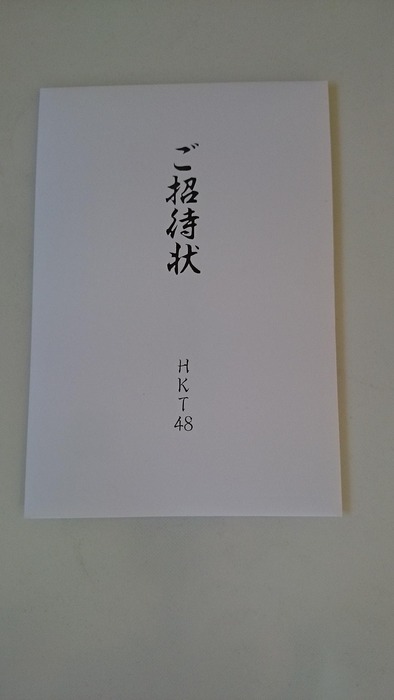 ご招待状
HKT48